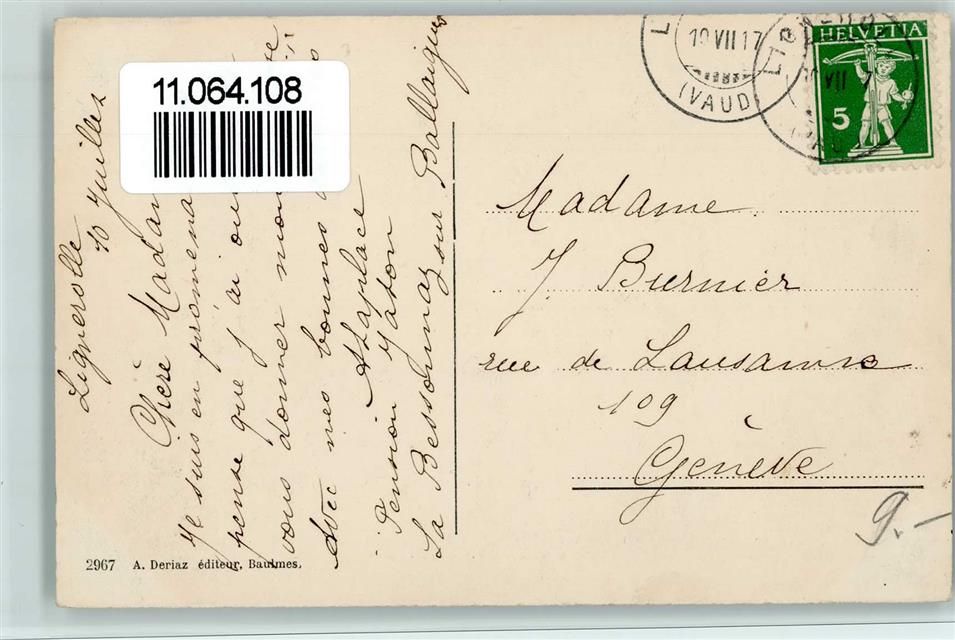 11.064.108
Lignerolle
10 Juillet
Chère Madam
Je suis en promena
pense que j'ai ou
vous donner mon
Avec mes bonnes
A Laplace
Pension Maton
La Bessonnaz sur Ballaigues
2967 A. Deriaz éditeur, Baulmes.
L
10 VII 17
(VAUD)
HELVETIA
5
Madame
J. Burnier
rue de Lausanne
109
Genève
9.-